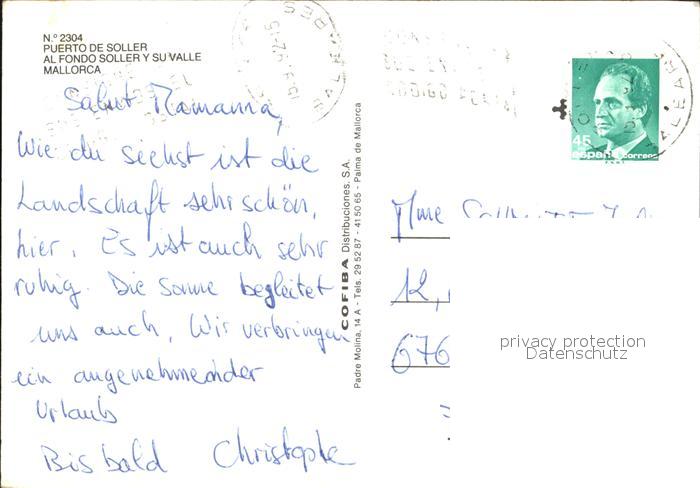 N.º 2304
PUERTO DE SOLLER
AL FONDO SOLLER Y SU VALLE
MALLORCA
Salut Mamama,
Wie du siehst ist die
Landschaft sehr schön,
hier. Es ist auch sehr
ruhig. Die Sonne begleitet
uns auch, Wir verbringen
ein angenehmender
Urlaub
Bis bald Christophe
COFIBA Distribuciones, S.A.
Padre Molina, 14 A - Tels. 29 52 87 - 41 50 65 - Palma de Mallorca
BALEARES
45
españa correos
BALEARES
Mme
12,
676
privacy protection
Datenschutz